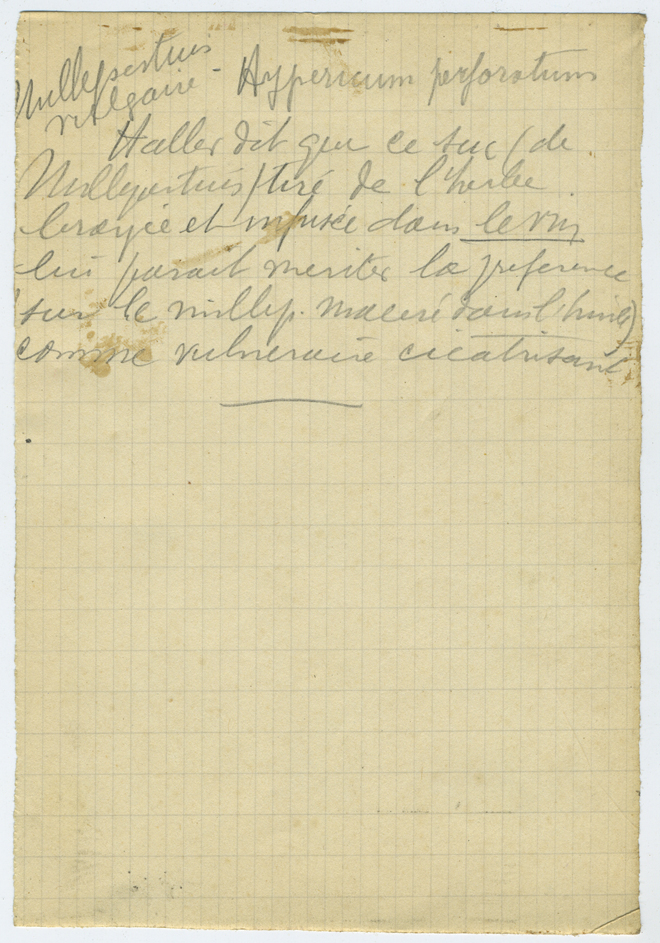 Millepertuis
vulgaire - Hypericum perforatum
Haller dit que ce suc (de
Millepertuis) tiré de l'herbe
broyée et infusée dans le vin
lui parait meriter la preference
(sur le millep. maceré dans l'huile)
comme vulneraire cicatrisant